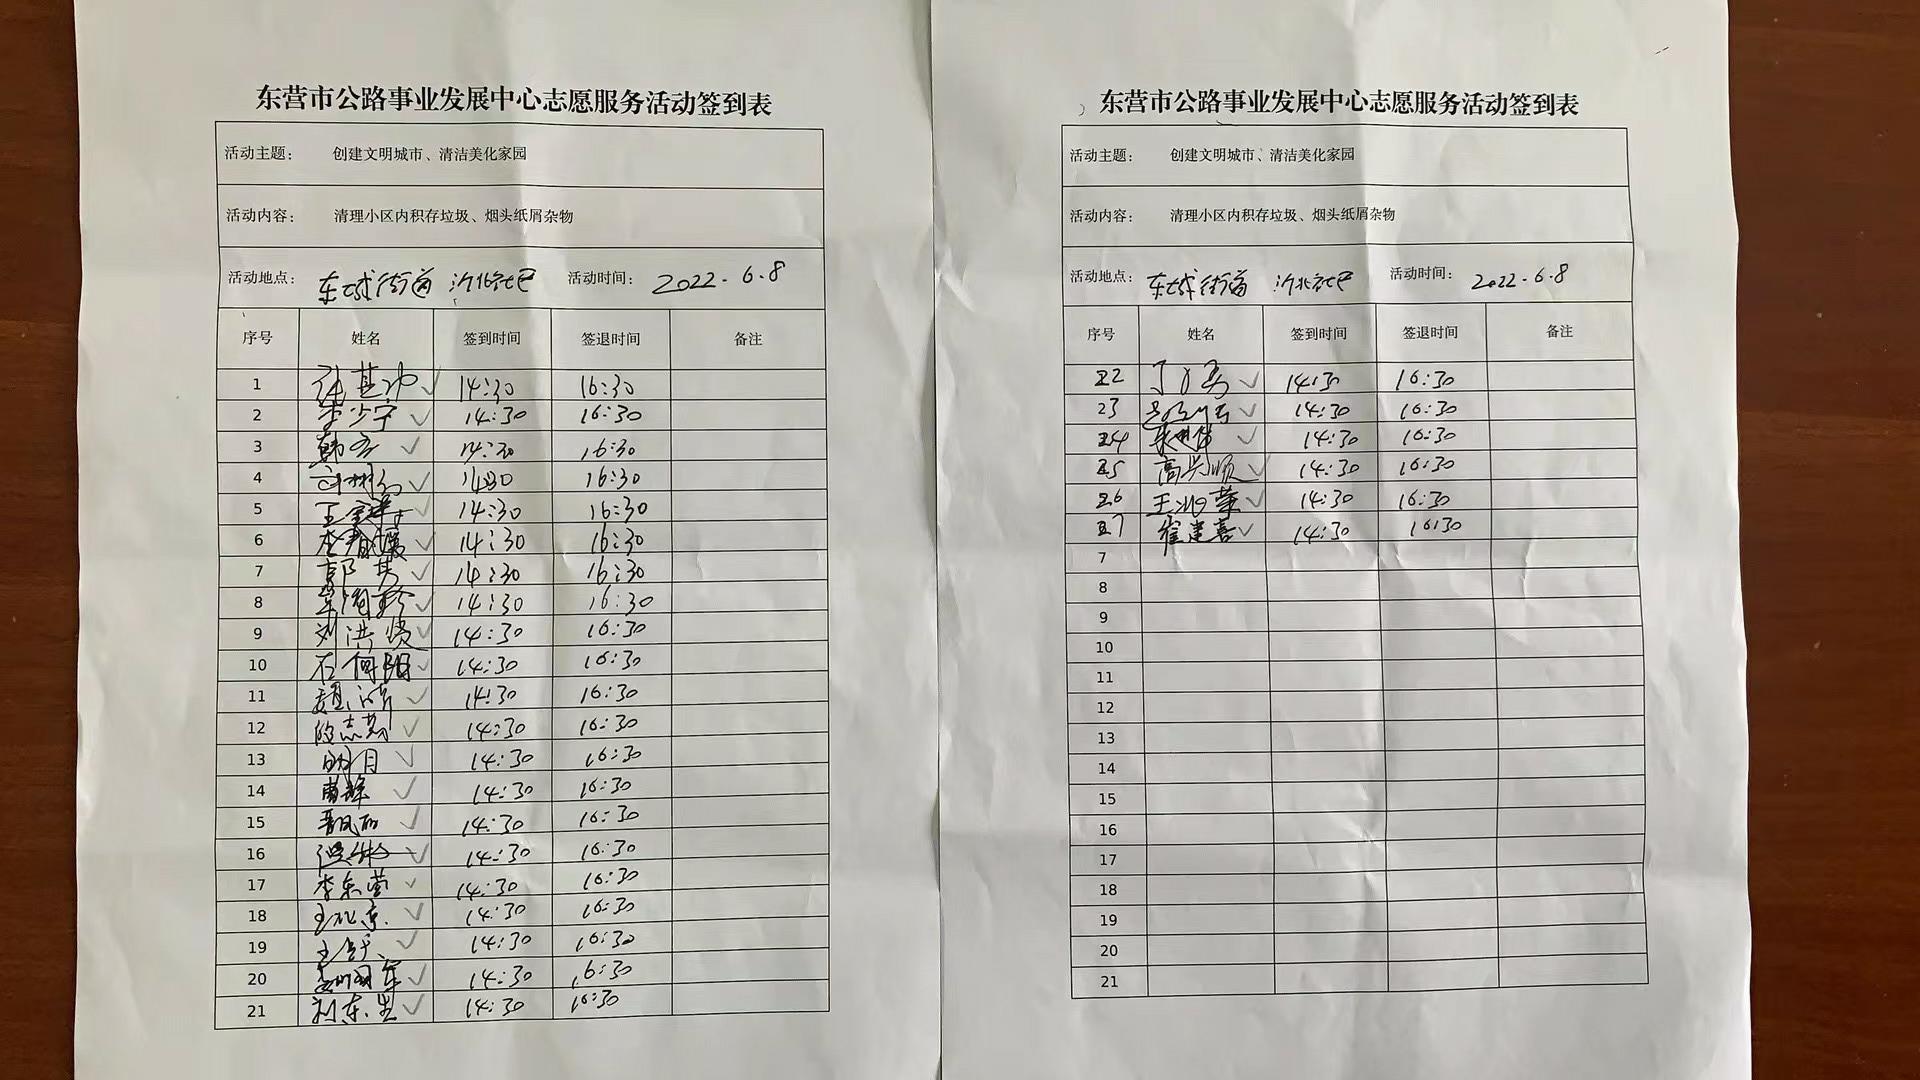 东营市公路事业发展中心志愿服务活动签到表
活动主题： 创建文明城市、清洁美化家园
活动内容： 清理小区内积存垃圾、烟头纸屑杂物
活动地点： 东城街道 沂北社区 活动时间： 2022.6.8
序号 姓名 签到时间 签退时间 备注
1 14:30 16:30
2 李少宁 14:30 16:30
3 14:30 16:30
4 14:30 16:30
5 14:30 16:30
6 李春媛 14:30 16:30
7 郭芳 14:30 16:30
8 14:30 16:30
9 刘洪贤 14:30 16:30
10 石向阳 14:30 16:30
11 14:30 16:30
12 14:30 16:30
13 明月 14:30 16:30
14 曹静 14:30 16:30
15 14:30 16:30
16 14:30 16:30
17 李东营 14:30 16:30
18 王北京 14:30 16:30
19 14:30 16:30
20 14:30 16:30
21 刘东生 14:30 16:30
东营市公路事业发展中心志愿服务活动签到表
活动主题： 创建文明城市、清洁美化家园
活动内容： 清理小区内积存垃圾、烟头纸屑杂物
活动地点： 东城街道 沂北社区 活动时间： 2022.6.8
序号 姓名 签到时间 签退时间 备注
22 14:30 16:30
23 14:30 16:30
24 14:30 16:30
25 高兴顺 14:30 16:30
26 14:30 16:30
27 崔建喜 14:30 16:30
7
8
9
10
11
12
13
14
15
16
17
18
19
20
21